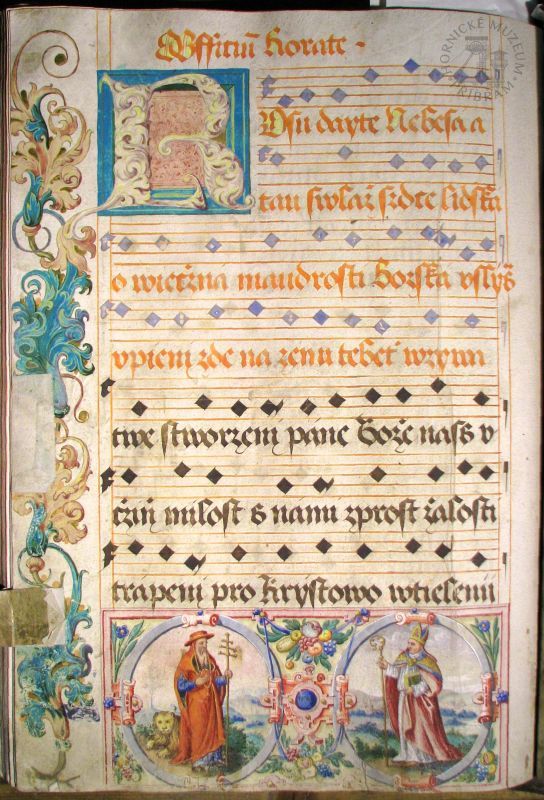 Offitiū Rorate
Rosu dayte Nebesa a
tau swlaž srdce lidska
o wiečzna maudrosti Božska vslyš
vpieni zde na zemi tebet wzywa
twe stworzeni pane Bože nass v
čziň milost s námi zprost žalosti
trapeni pro Krystowo wtieleni
HORNICKÉ MUZEUM PŘÍBRAM